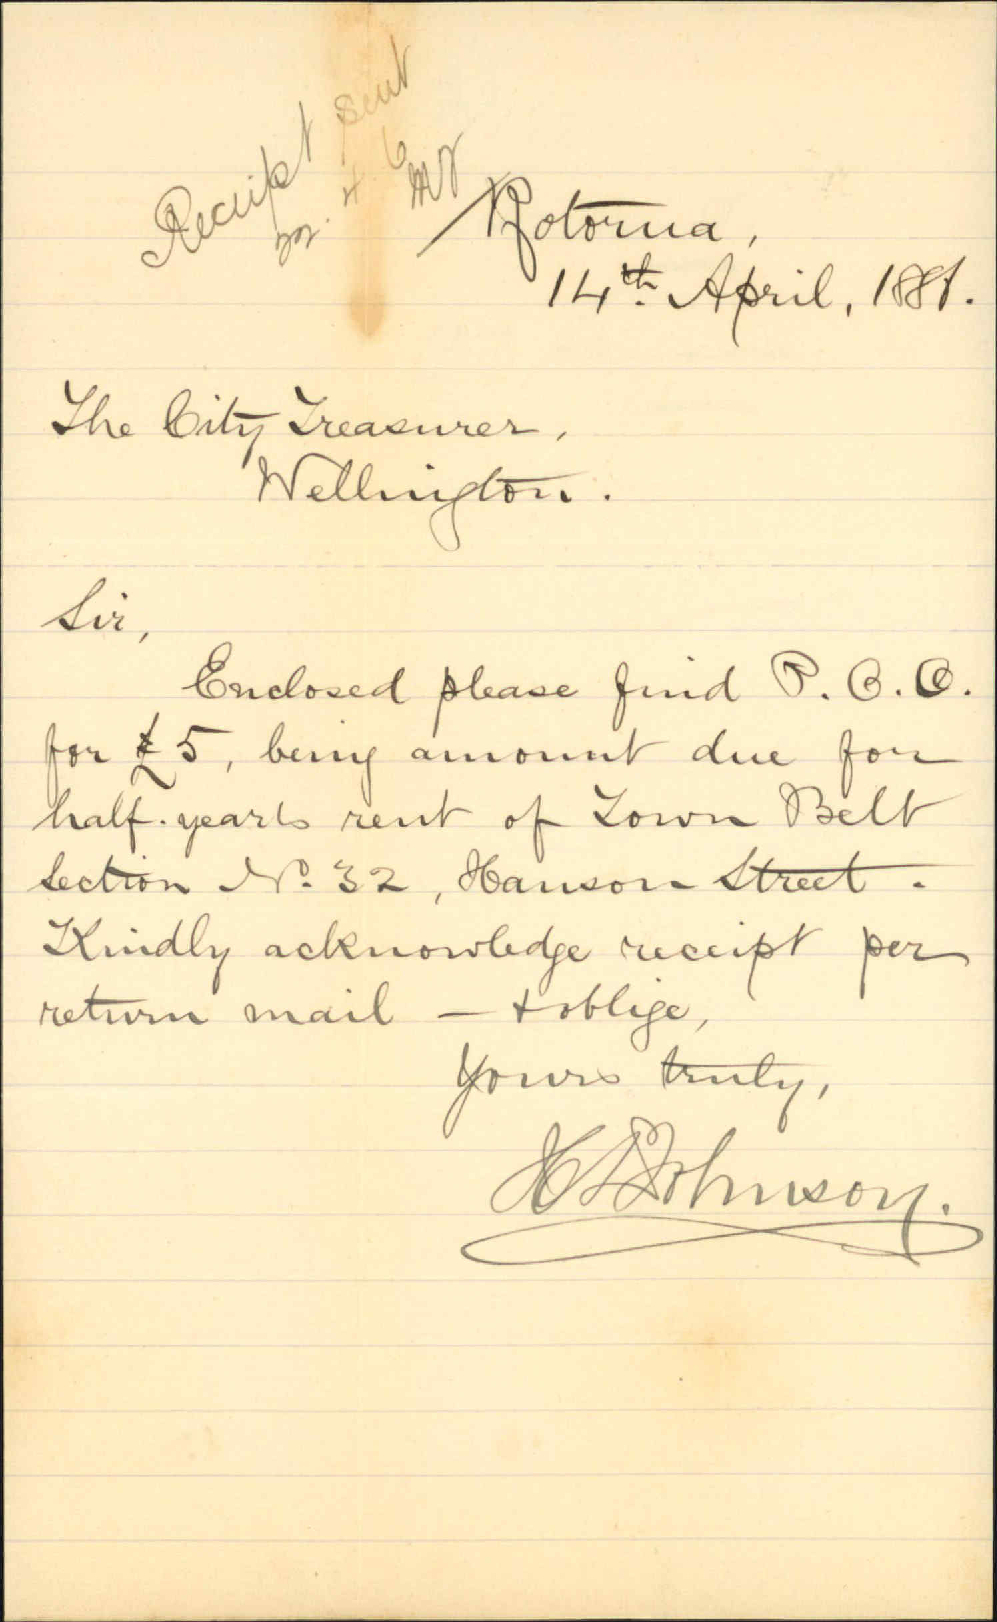 Receipt sent
Rotorua,
14th April, 1881.
The City Treasurer,
Wellington.
Sir,
Enclosed please find P. O. O.
for £5, being amount due for
half-year's rent of Town Belt
Section No. 32, Hanson Street.
Kindly acknowledge receipt per
return mail — & oblige,
Yours truly,
H Johnson.